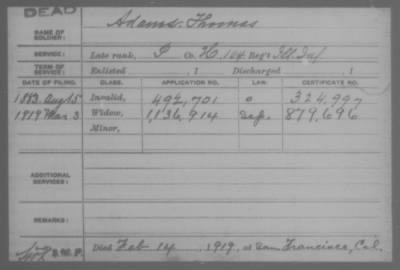 DEAD
NAME OF SOLDIER: Adams, Thomas
SERVICE: Late rank, P Co. H, 104 Reg't Ill. Inf
TERM OF SERVICE: Enlisted , 1 Discharged , 1
DATE OF FILING. CLASS. APPLICATION NO. LAW. CERTIFICATE NO.
1883 Aug 15 Invalid, 492,701 324,997
1919 Mar 3 Widow, 1,136,914 879,696
Minor,
ADDITIONAL SERVICES:
REMARKS:
Died Feb 14, 1919, at San Francisco, Cal.